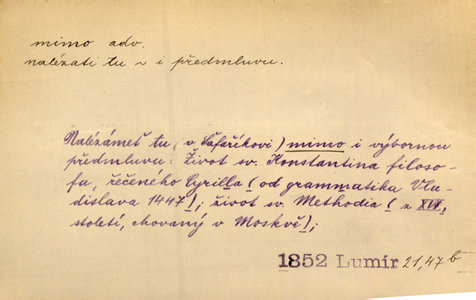 mimo adv.
nalézati tu ~ i předmluvu.
Nalézámeť tu (v Šafaříkovi) mimo i výbornou
předmluvu: Život sv. Konstantina filoso-
fa, řečeného Cyrilla (od grammatika Vla-
dislava 1447); život sv. Methodia (z XVI,
století, chovaný v Moskvě);
1852 Lumír 21,47 b